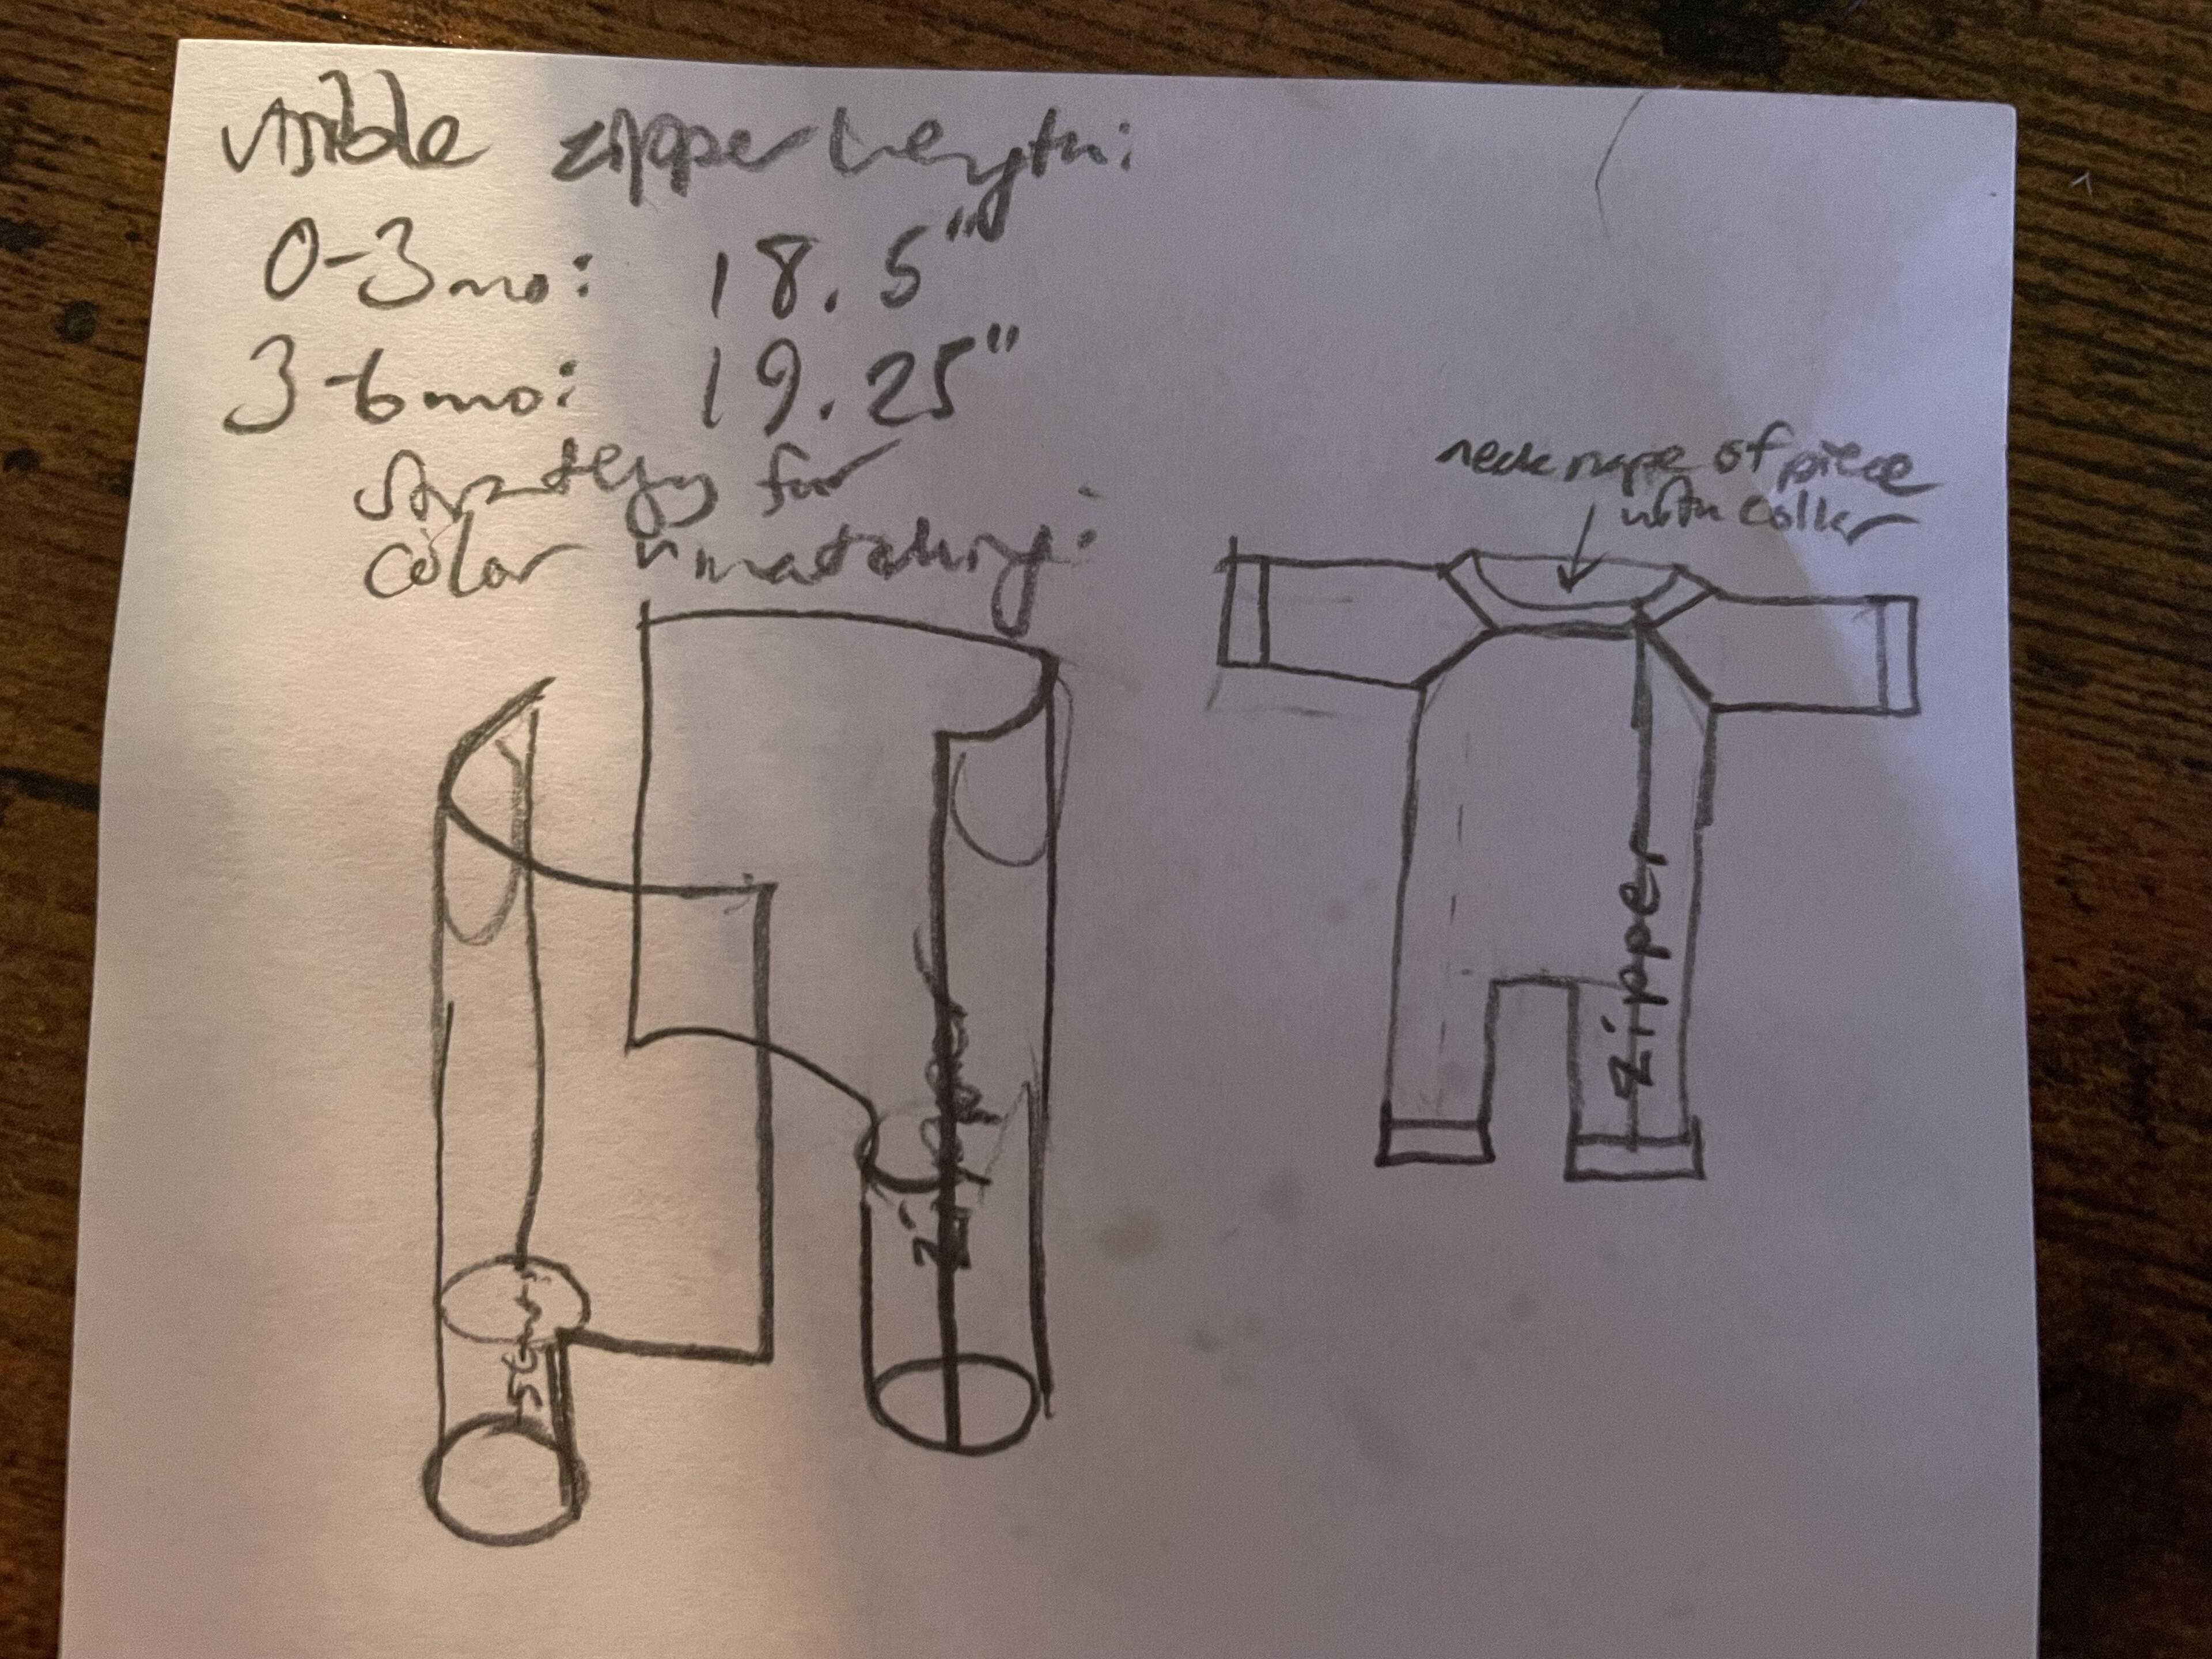 visible zipper length:
0-3mo: 18.5"
3-6mo: 19.25"
strategy for
color matching:
neck nape of piece
with collar
zipper
zipper